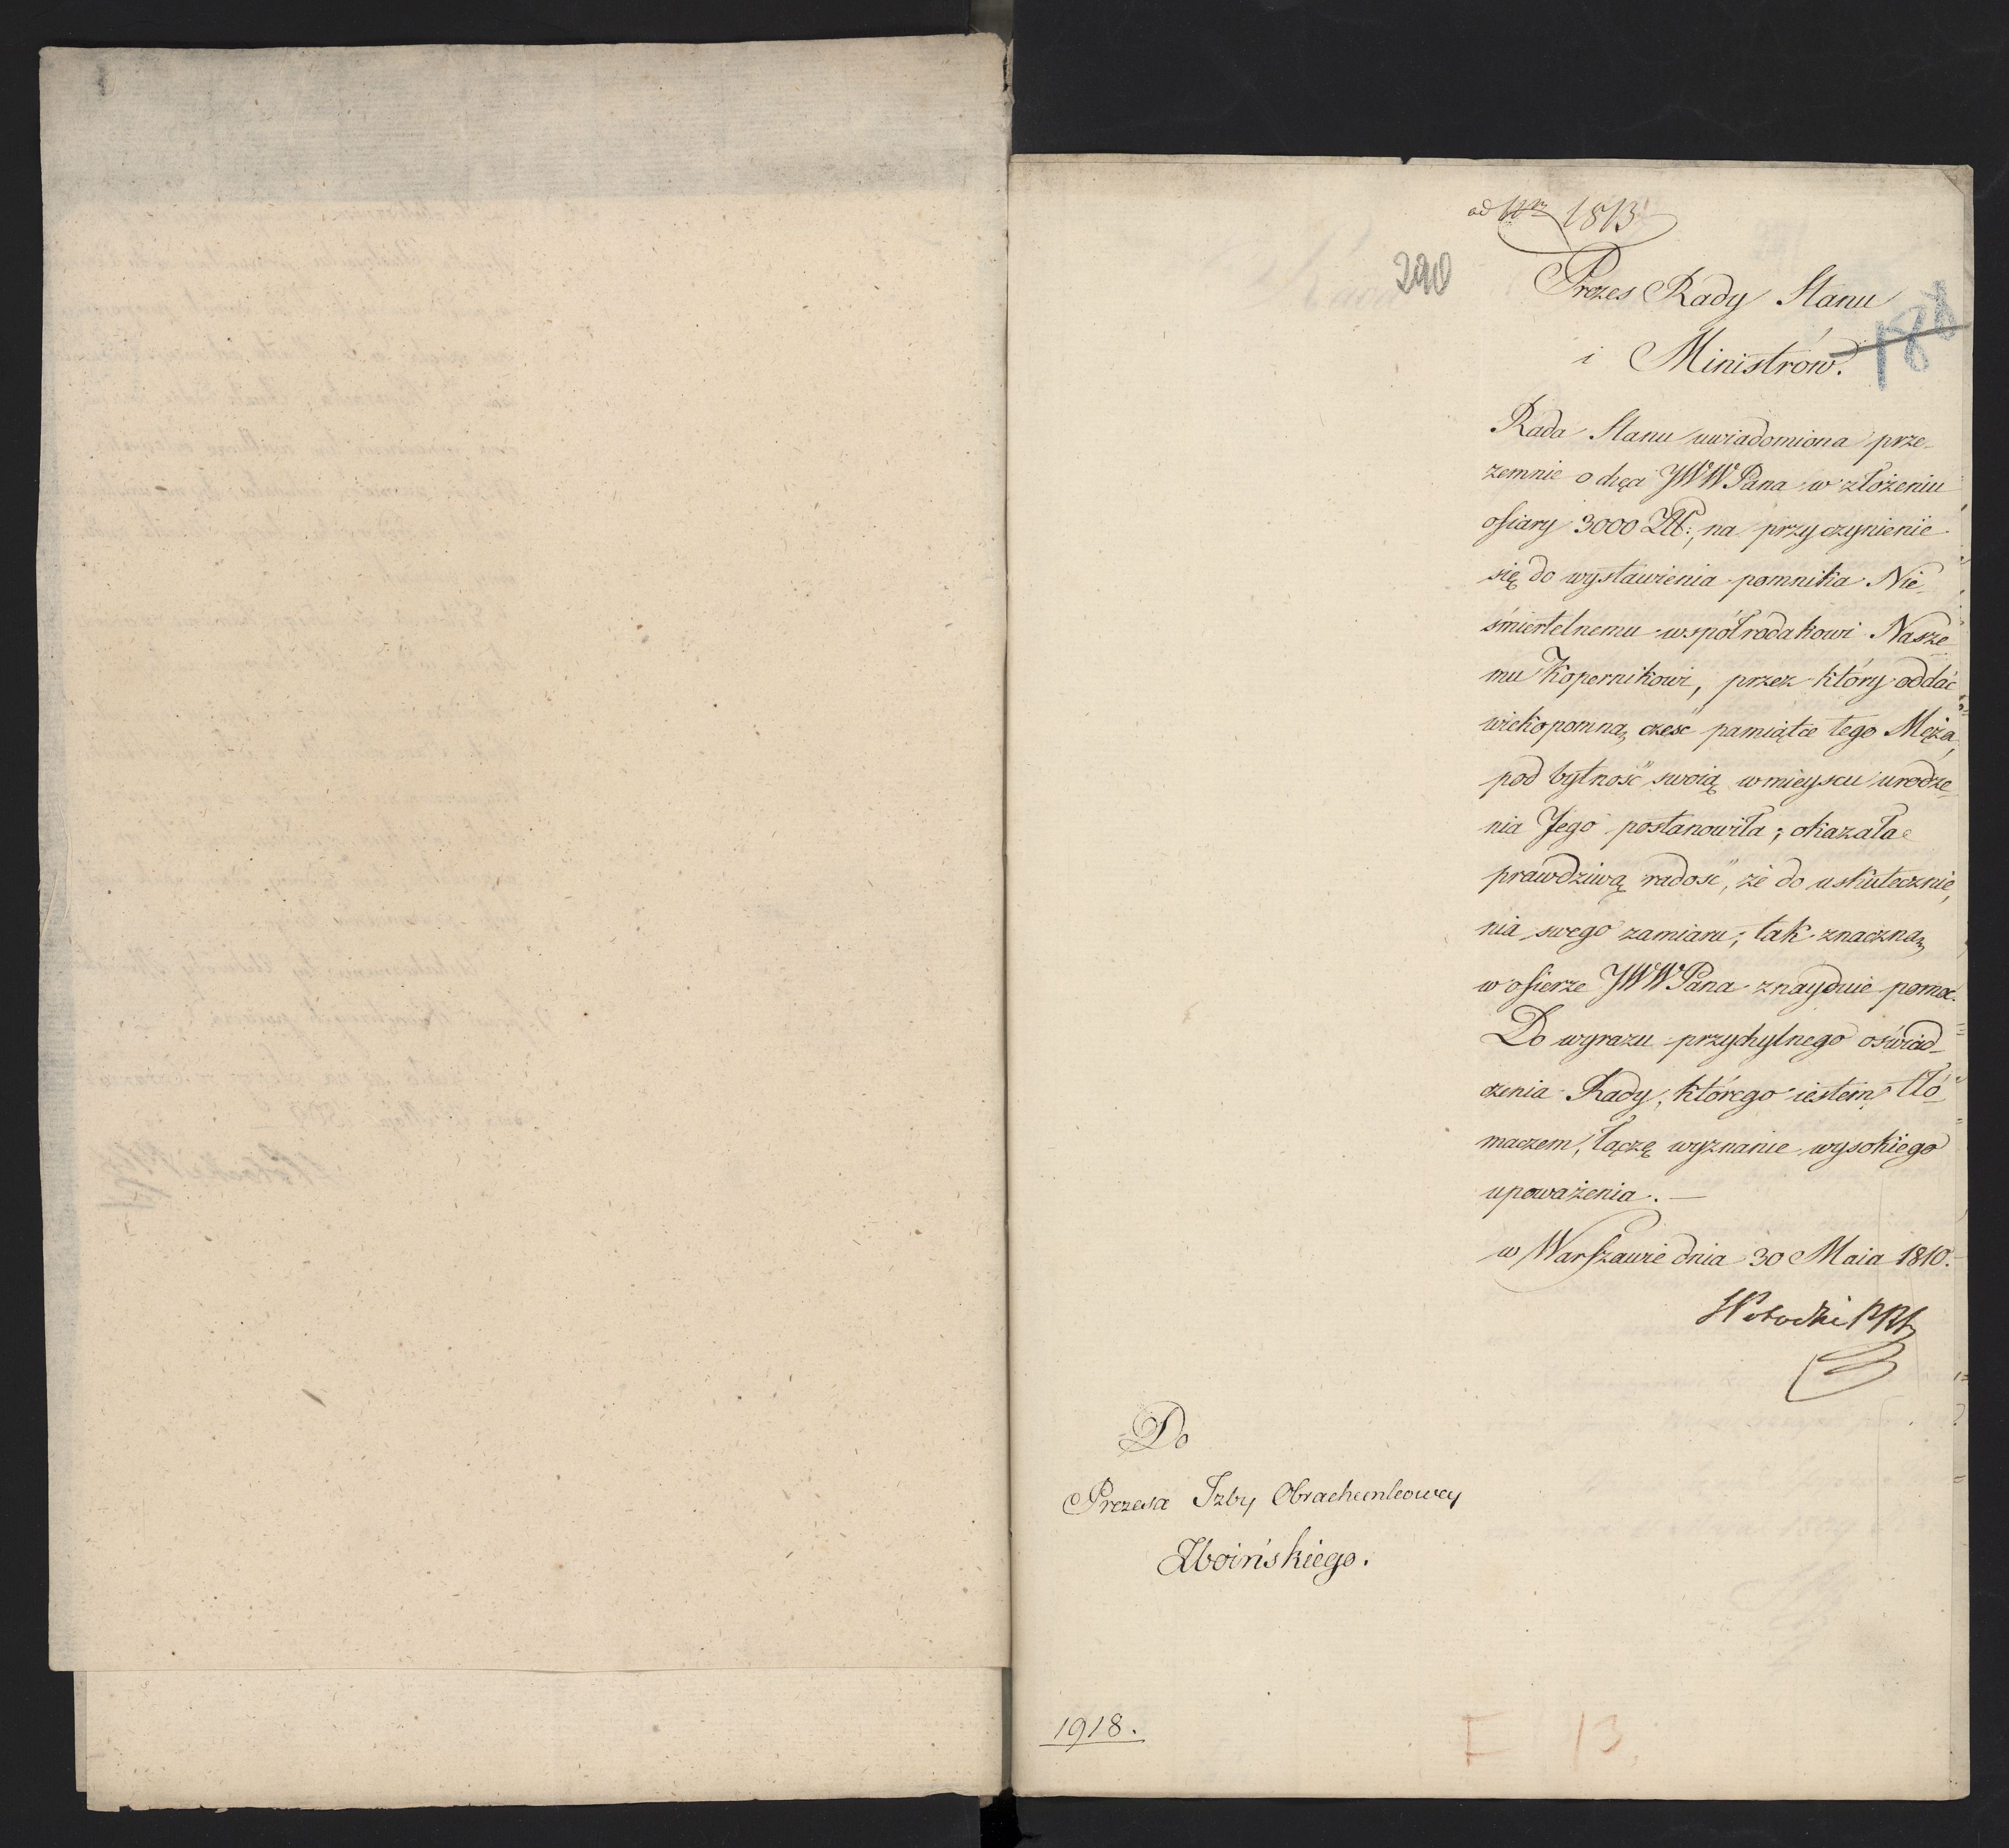 ad Nrm 1813
290
Prezes Rady Stanu
188
i Ministrów.
Rada Stanu uwiadomiona prze-
zemnie o chęci JWW Pana w złożeniu
ofiary 3000 Złł:, na przyczynienie
się do wystawienia pomnika Nie-
śmiertelnemu współrodakowi Nasze
mu Kopernikowi, przez który oddać
wiekopomną cześć pamiątce tego Męża,
pod bytność swoią w mieyscu urodze-
nia Jego postanowiła; okazała
prawdziwą radość, że do uskutecznie,
nia swego zamiaru; tak znaczną
w ofierze JWW Pana znayduie pomoc.
Do wyrazu przychylnego oświad-
czenia Rady, którego iestem tłó-
maczem, łączę wyznanie wysokiego
upoważenia. —
w Warszawie dnia 30 Maia 1810.
SPotocki PRS
Do
Prezesa Izby Obrachunkowey
Zboińskiego.
1918.
F 13.